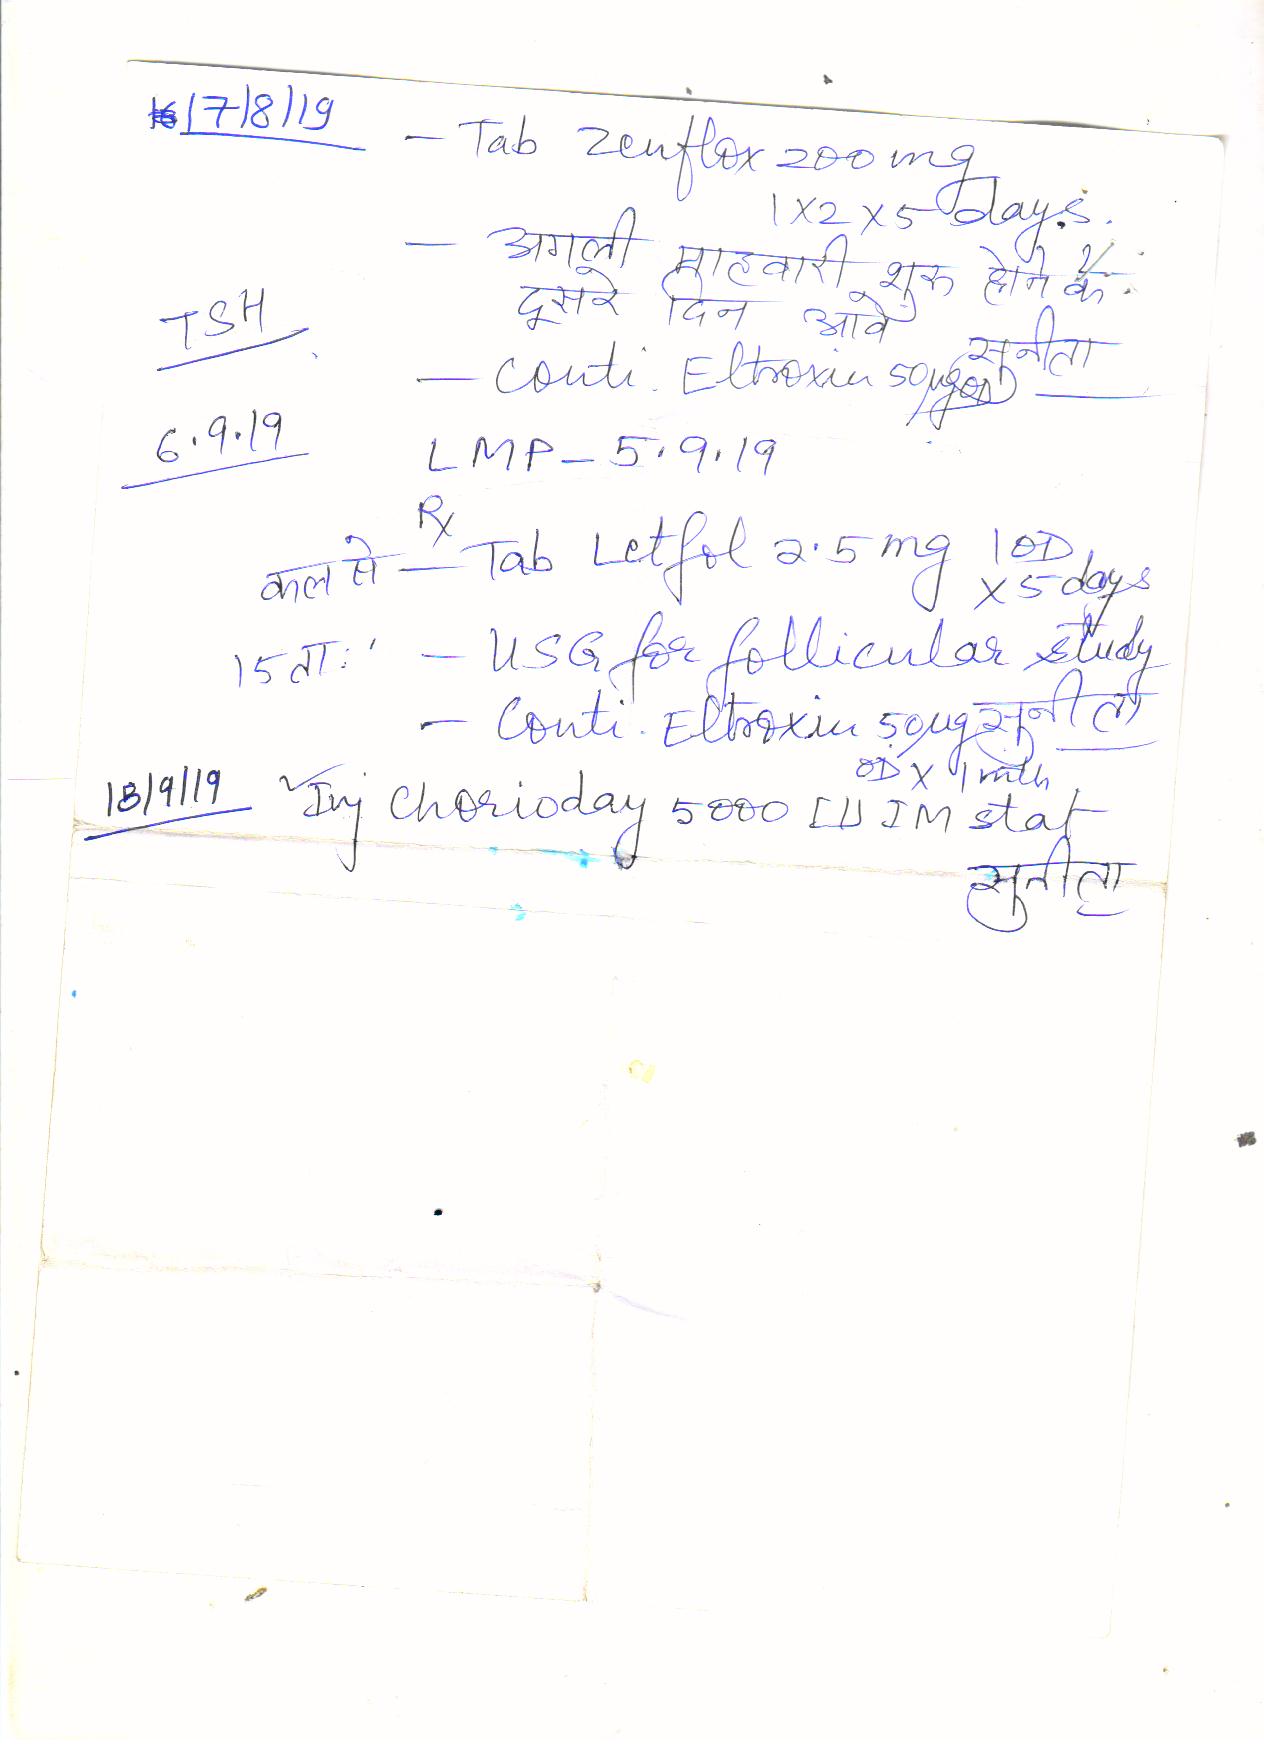 17/8/19
- Tab Zenflox 200 mg
1 x 2 x 5 days.
- अगली माहवारी शुरू होने के
दूसरे दिन आवे
TSH
सुनीता
- Conti. Eltroxin 50µg OD
6.9.19
LMP - 5.9.19
Rx
कल से - Tab Letfol 2.5 mg 1 OD
x 5 days
15 ता: - USG for follicular study
- Conti. Eltroxin 50µg सुनीता
OD x 1 mth
18/9/19 Inj Chorioday 5000 IU IM stat
सुनीता